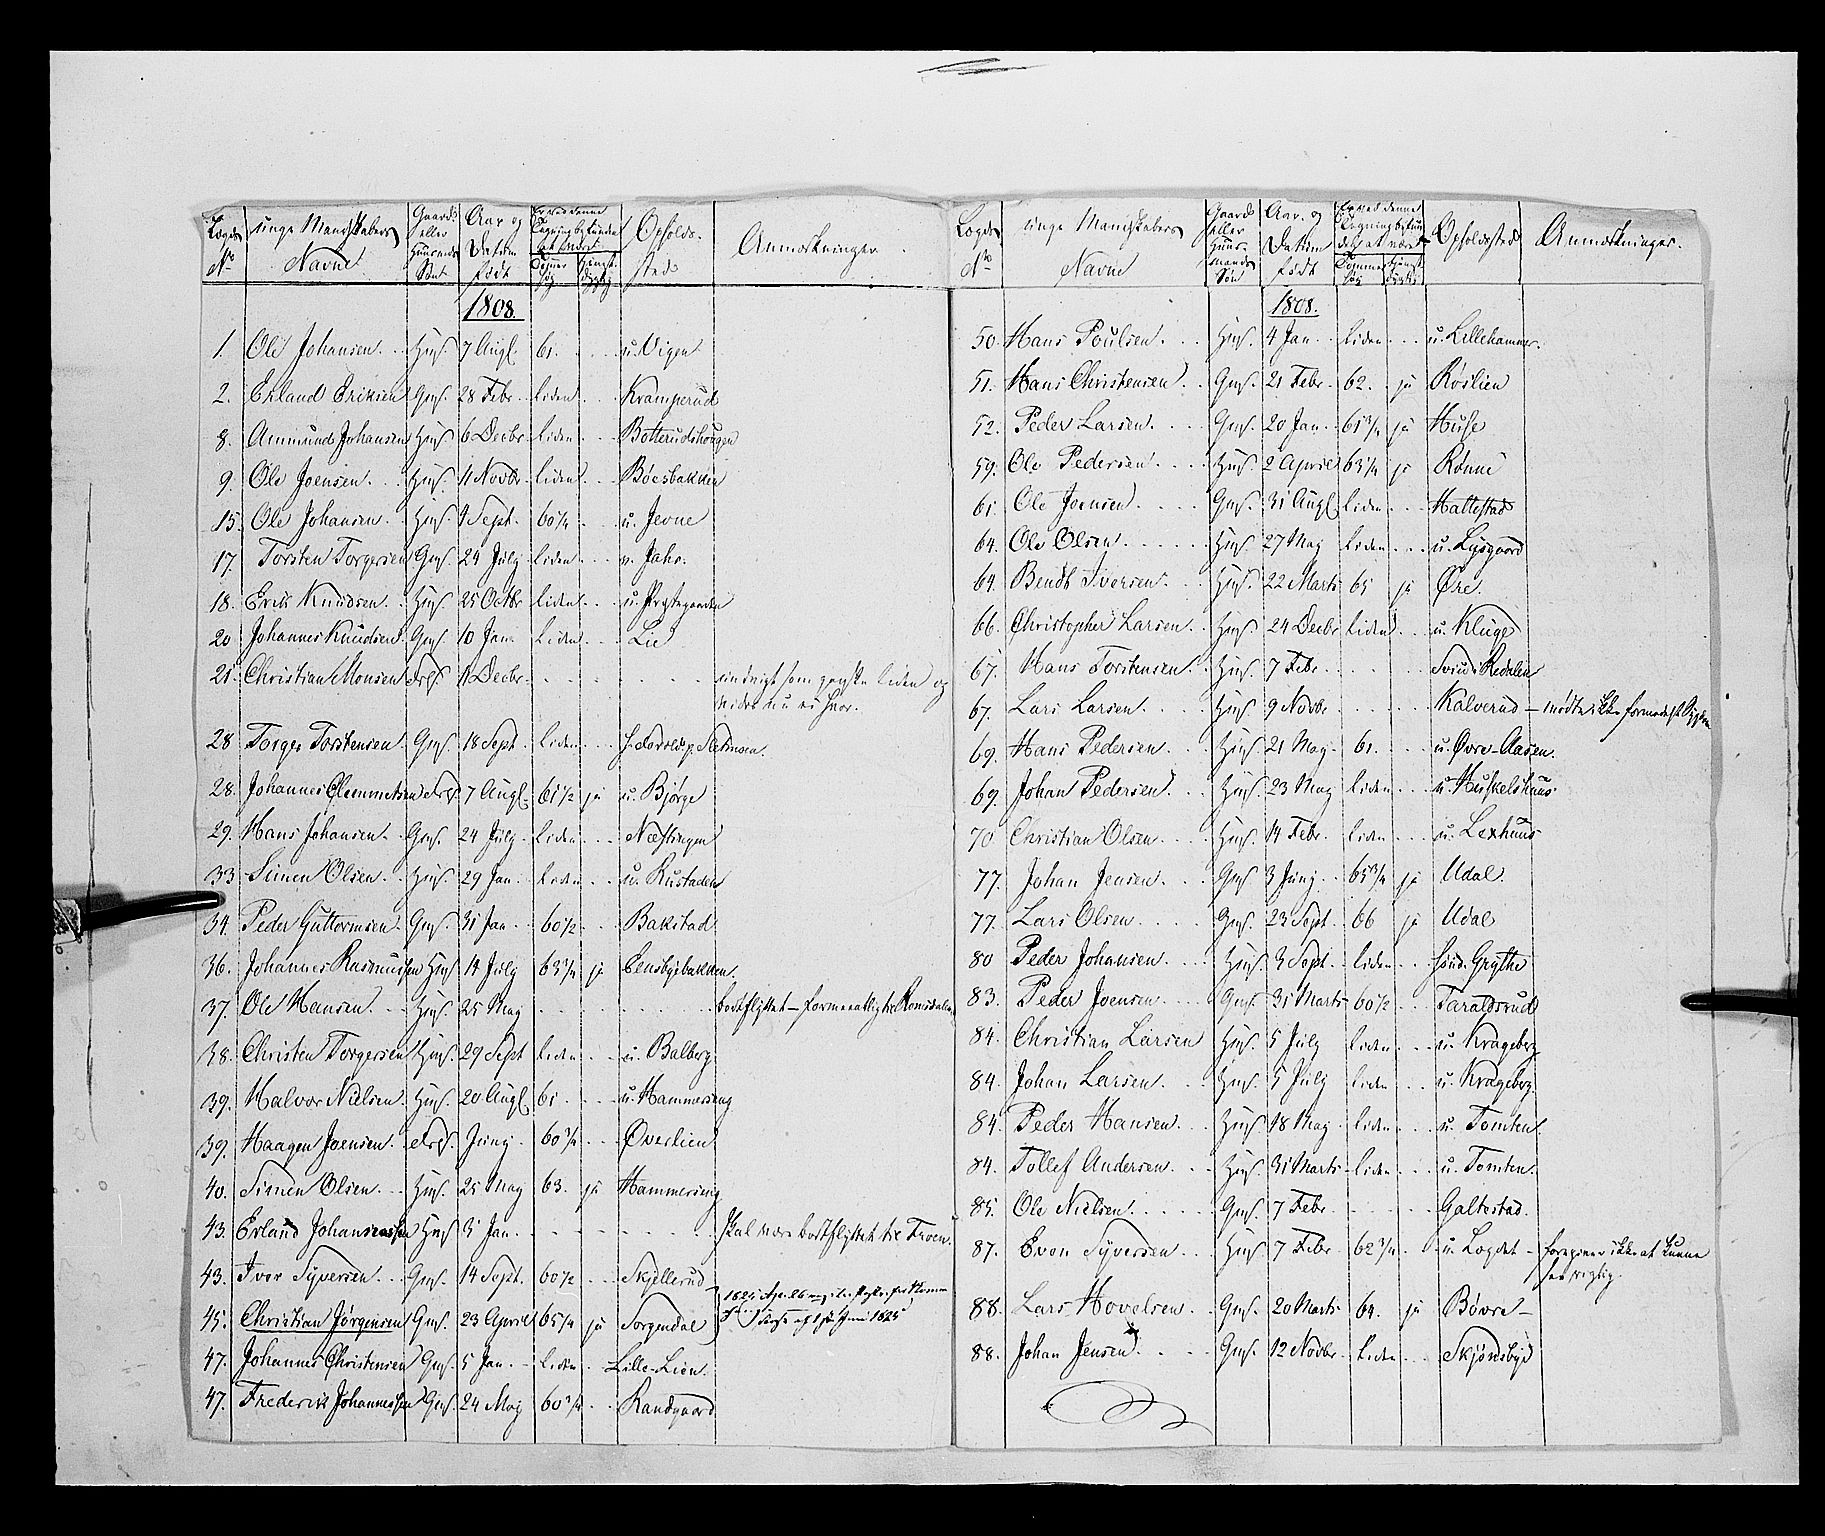 Lægds No | unge Mandskabers Navne | Gaards eller Huusmds Søn | Aar og Datum født | Er ved denne Tegning befunden at være Tommer høj | Tjenst dygtig | Opholds sted | Anmærkninger.
1808.
1. Ole Johansen. Hms. 7 Augs. 61. u. Vigen
2. Erland Eriksen Gms. 28 Febr. liden Kramperud
8. Ammund Johansen Hms. 6 Decbr. liden Botterudshougen
9. Ole Joensen. Hms. 11 Novbr liden Bøesbakken
15. Ole Johansen. Hms. 4 Sept. 60 1/4 u. Jevne
17. Torsten Torgersen Gms. 24 July liden n. Jahr.
18. Erik Knudsen. Hms. 25 Octbr liden u. Prestegaarden
20 Johannes Knudsen. Gms. 10 Jan. liden Lie
21. Christian Monsen 11 Decbr.
28 Torger Torstensen Gms. 18 Sept. liden
28. Johannes Clemmetsen 7 Augs. 61 1/2 ja u. Bjørge
29. Hans Johansen. Gms. 24 July liden Næslingen
33 Simen Olsen. Hms. 29 Jan. liden u. Rustaden
34. Peder Guttormsen Gms. 31 Jan. 60 1/2 Bakstad
36. Johannes Rasmussen Hms. 14 July 63 3/4 ja Eensbyebakken.
37. Ole Hansen. Hms. 25 May bortflyttet – formeentlig til Romsdalen
38. Christen Torgersen Hms. 29 Sept liden u. Balberg
39. Halvor Nielsen. Hms. 20 Augs. 61 u. Hammerseng
39. Haagen Joensen. Juny 60 3/4 Øverlien
40. Simen Olsen. Hms. 25 May 63. ja Hammerseng
43. Erland Johannessen Hms 3 Jan. skal være bortflyttet til Froen.
43. Iver Syversen. Gms. 14 Sept. 60 1/2 Skjellerud
45. Christian Jørgensen Gms. 23 April 65 1/4 ja Sorgendal
47. Johannes Christensen Gms. 5 Jan. liden Lille-Lien.
47. Frederik Johannessen Gms. 24 May 60 3/4 Randgaard
Lægds No | unge Mandskabers Navne | Gaards eller Huusmands Søn | Aar og Datum født | Er ved denne Tegning befunden at være Tommer høj | tjenst dygtig | Opholdssted | Anmærkninger.
1808.
50. Hans Poulsen. Hms. 4 Jan. liden u. Lillehammer.
51. Hans Christensen. Gms. 21 Febr. 62. ja Røslien
52. Peder Larsen. Gms. 20 Jan. 61 3/4 ja Huse
59. Ole Pedersen. Hms. 2 April 63 1/4 ja Rønne
61 Ole Joensen. Gms. 31 Augs. liden Hattestad
64. Ole Olsen. Hms. 27 May liden u. Lysgaard
64. Bendt Iversen. Hms. 22 Marts 65 ja Øre.
66. Christopher Larsen. Hms. 24 Decbr liden u. Kluge
67. Hans Torstensen. Hms. 7 Febr. Redalen
67. Lars Larsen. Hms. 9 Novbr. Kalverud – mødte ikke formedelst Sygdom
69. Hans Pedersen. Hms. 21 May. 61. u. Øvre-Aasen.
69. Johan Pedersen. Hms. 23 May liden u. Huskelshuus
70 Christian Olsen. Hms. 14 Febr. liden u. Lexhuus
77. Johan Jensen. Gms. 3 Juny 65 3/4 ja Udal.
77. Lars Olsen. Gms. 23 Sept. 66 ja Udal
80 Peder Johansen. Hms. 3 Sept. liden Grythe
83. Peder Joensen. Gms. 31 Marts 60 1/2 Taraldsrud
84. Christian Larsen Hms. 5 July liden u. Krageberg
84. Johan Larsen. Hms. 5 July liden u. Krageberg
84. Peder Hansen. Hms. 18 May liden u. Tomten.
84. Tollef Andersen. Hms. 31 Marts liden u. Tomten.
85. Ole Nielsen. Gms. 7 Febr. Galtestad.
87. Even Syversen. Hms 7 Febr. 62 3/4 u. Logdet – foregiver ikke at kunne see rigtig.
88. Lars Hovelsen. Gms. 20 Marts 64. ja Bøvre
88. Johan Jensen. Gms. 12 Novbr. liden Skjønsbye